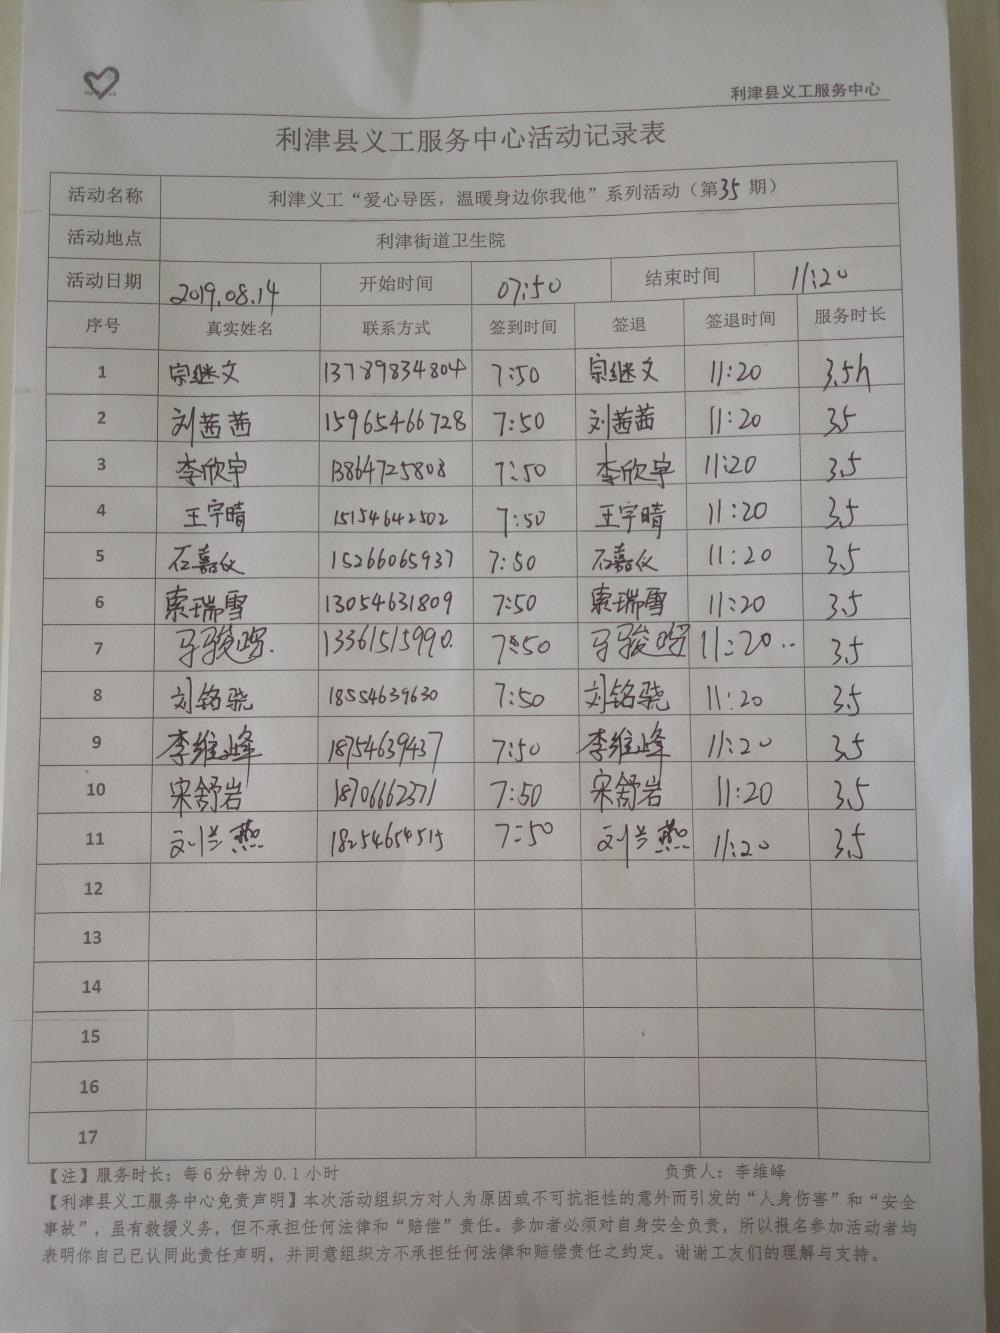 利津县义工服务中心
利津县义工服务中心活动记录表
活动名称 利津义工“爱心导医，温暖身边你我他”系列活动（第35期）
活动地点 利津街道卫生院
活动日期 2019.08.14 开始时间 07:50 结束时间 11:20
序号 真实姓名 联系方式 签到时间 签退 签退时间 服务时长
1 宗继文 13789834804 7:50 宗继文 11:20 3.5h
2 刘茜茜 15965466728 7:50 刘茜茜 11:20 3.5
3 李欣宇 13864725808 7:50 李欣宇 11:20 3.5
4 王宇晴 15154642502 7:50 王宇晴 11:20 3.5
5 石嘉仪 15266065937 7:50 石嘉仪 11:20 3.5
6 索瑞雪 13054631809 7:50 索瑞雪 11:20 3.5
7 马骏 13361515990. 7:50 马骏 11:20.. 3.5
8 刘铭骁 18554639630 7:50 刘铭骁 11:20 3.5
9 李维峰 18754639437 7:50 李维峰 11:20 3.5
10 宋舒岩 18706662371 7:50 宋舒岩 11:20 3.5
11 刘兰燕 18254654515 7:50 刘兰燕 11:20 3.5
12
13
14
15
16
17
【注】服务时长：每6分钟为0.1小时 负责人：李维峰
【利津县义工服务中心免责声明】本次活动组织方对人为原因或不可抗拒性的意外而引发的“人身伤害”和“安全
事故”，虽有救援义务，但不承担任何法律和“赔偿”责任。参加者必须对自身安全负责，所以报名参加活动者均
表明你自己已认同此责任声明，并同意组织方不承担任何法律和赔偿责任之约定。谢谢工友们的理解与支持。